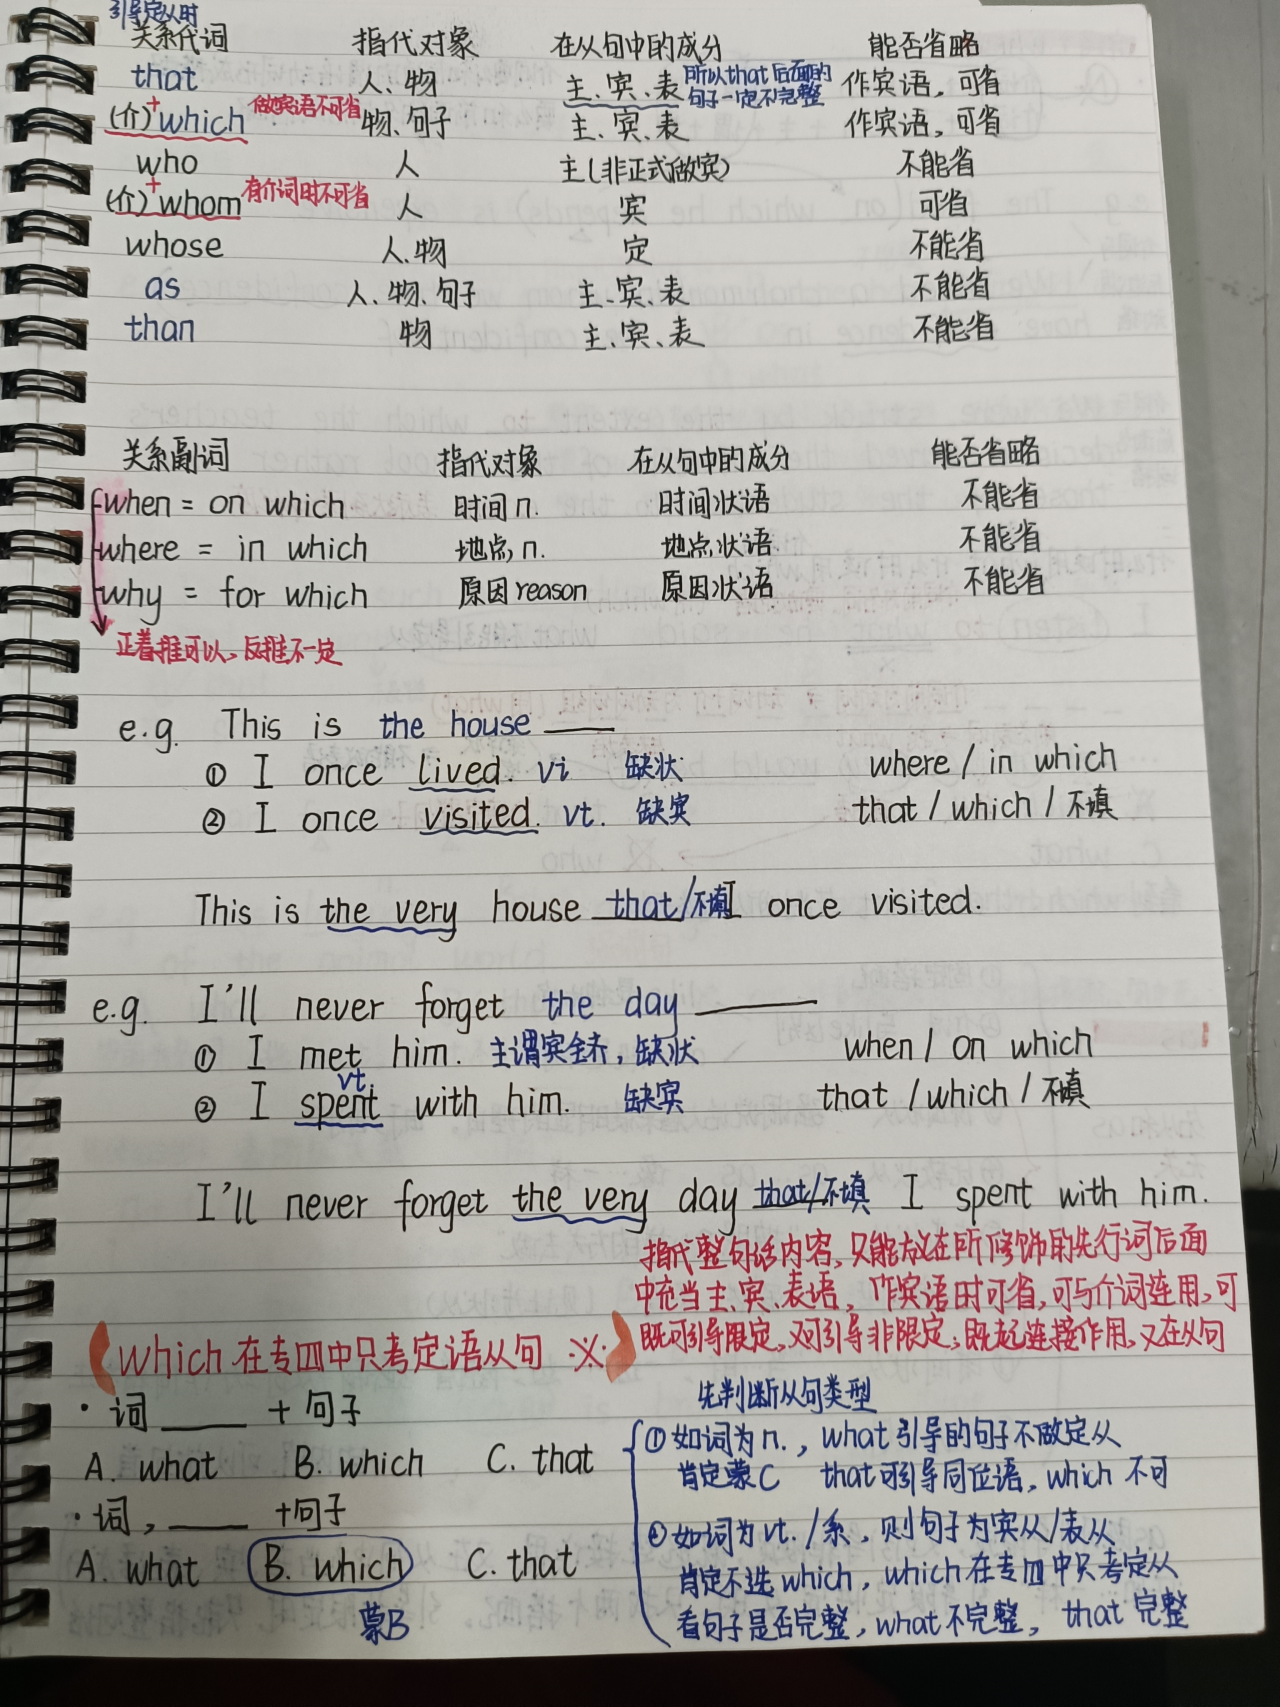 引导定从时
关系代词 指代对象 在从句中的成分 能否省略
that 人、物 主、宾、表 所以that后面的句子一定不完整 作宾语,可省
(介)+which 做宾语不可省 物、句子 主、宾、表 作宾语,可省
who 人 主(非正式做宾) 不能省
(介)+whom 有介词时不可省 人 宾 可省
whose 人、物 定 不能省
as 人、物、句子 主、宾、表 不能省
than 物 主、宾、表 不能省
关系副词 指代对象 在从句中的成分 能否省略
when = on which 时间n. 时间状语 不能省
where = in which 地点n. 地点状语 不能省
why = for which 原因reason 原因状语 不能省
正着推可以,反推不一定
e.g. This is the house ___
① I once lived. vi 缺状 where / in which
② I once visited. vt. 缺宾 that / which / 不填
This is the very house that/不填 I once visited.
e.g. I'll never forget the day ___
① I met him. 主谓宾全齐,缺状 when / on which
② I spent with him. 缺宾 that / which / 不填
vt
I'll never forget the very day that/不填 I spent with him.
指代整句话内容,只能放在所修饰的先行词后面
中充当主、宾、表语,作宾语时可省,可与介词连用,可
既可引导限定,又可引导非限定;既起连接作用,又在从句
which在专四中只考定语从句 ※
·词 ___ +句子
A. what B. which C. that
·词, ___ +句子
A. what B. which C. that
蒙B
先判断从句类型
①如词为n.,what引导的句子不做定从
肯定蒙C that可引导同位语,which不可
②如词为vt./系,则句子为宾从/表从
肯定不选which,which在专四中只考定从
看句子是否完整,what不完整,that完整